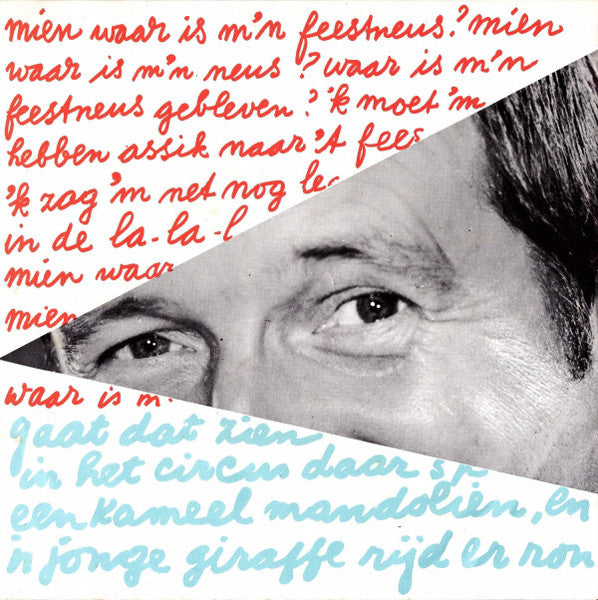 mien waar is m'n feestneus? mien
waar is m'n neus? waar is m'n
feestneus gebleven? 'k moet 'm
hebben assik naar 't fees
'k zag 'm net nog le
in de la-la-l
mien waar
mien
waar is m.
gaat dat zien
in het circus daar sp
een kameel mandolien, en
'n jonge giraffe rijd er ron